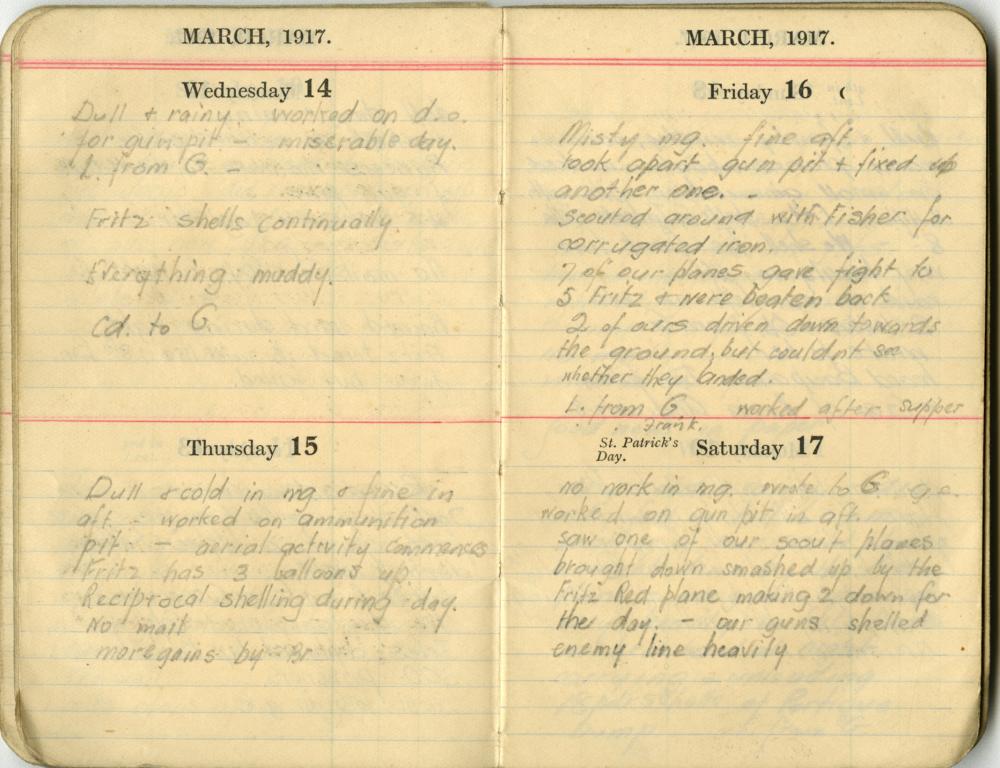 MARCH, 1917.
Wednesday 14
Dull + rainy. worked on d.o.
for gun pit - miserable day.
L. from G. -
Fritz shells continually.
Everything muddy.
Cd. to G.
Thursday 15
Dull + cold in mg. + fine in
aft. - worked on ammunition
pit - aerial activity commences
Fritz has 3 balloons up.
Reciprocal shelling during day.
No mail
more gains by Br
MARCH, 1917.
Friday 16
Misty mg. fine aft.
took apart gun pit + fixed up
another one. -
scouted around with Fisher for
corrugated iron.
7 of our planes gave fight to
5 Fritz + were beaten back
2 of ours driven down towards
the ground, but couldnt see
whether they landed.
L. from G. worked after supper
Frank.
St. Patrick's
Day.
Saturday 17
no work in mg. wrote to G.
worked on gun pit in aft.
saw one of our scout planes
brought down smashed up by the
Fritz Red plane making 2 down for
the day. - our guns shelled
enemy line heavily